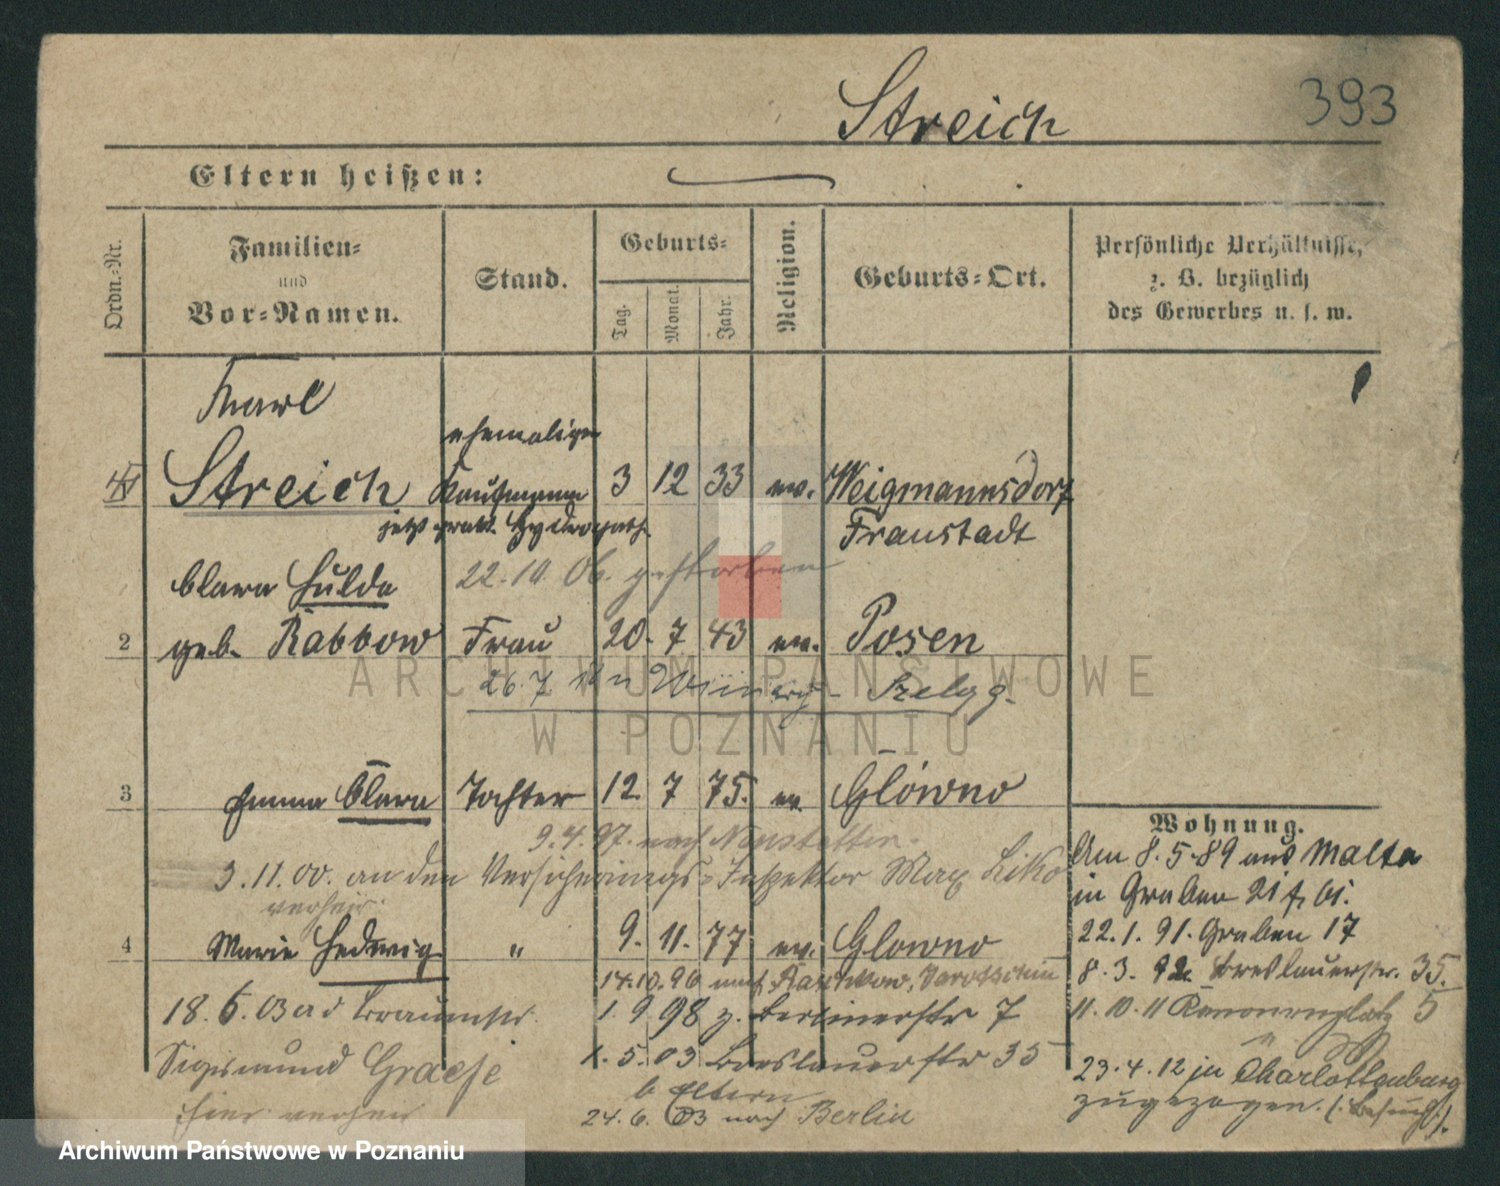 Streich
393
Eltern heißen:
Ordn.-Nr.
Familien-
und
Vor-Namen.
Stand.
Geburts-
Tag.
Monat.
Jahr.
Religion.
Geburts-Ort.
Persönliche Verhältnisse,
z. B. bezüglich
des Gewerbes u. s. w.
Karl
Streich
ehemaliger
Kaufmann
jetzt prakt. Hydropath.
3 12 33 ev. Weigmannsdorf
Fraustadt
22.10.06. gestorben
Clara Hulda
2 geb. Rabbow Frau 20. 7 43 ev. Posen
26.7
3 Emma Clara Tochter 12. 7 75. ev. Glówno
9.4.97. nach Neustettin.
3.11.00. an den Versicherungs-Inspektor Max
verheir.
4 Marie Hedwig " 9. 11. 77 ev. Glowno
14.10.96 nach
18.6.03 a d
Sigismund Graefe
hier verheir
1.9.98 z. Berlinerstr 7
1.5.03 Breslauerstr 35
b Eltern
24.6.03 nach Berlin
Wohnung.
Am 8.5.89 aus Malta
in Graben 21 f. bi.
22.1.91. Graben 17
8.3.92. Breslauerstr. 35.
11.10.11 Kanonenplatz 5
23.4.12 in Charlottenburg
zugezogen. (: Besuch :).
ARCHIWUM PAŃSTWOWE
W POZNANIU
Archiwum Państwowe w Poznaniu